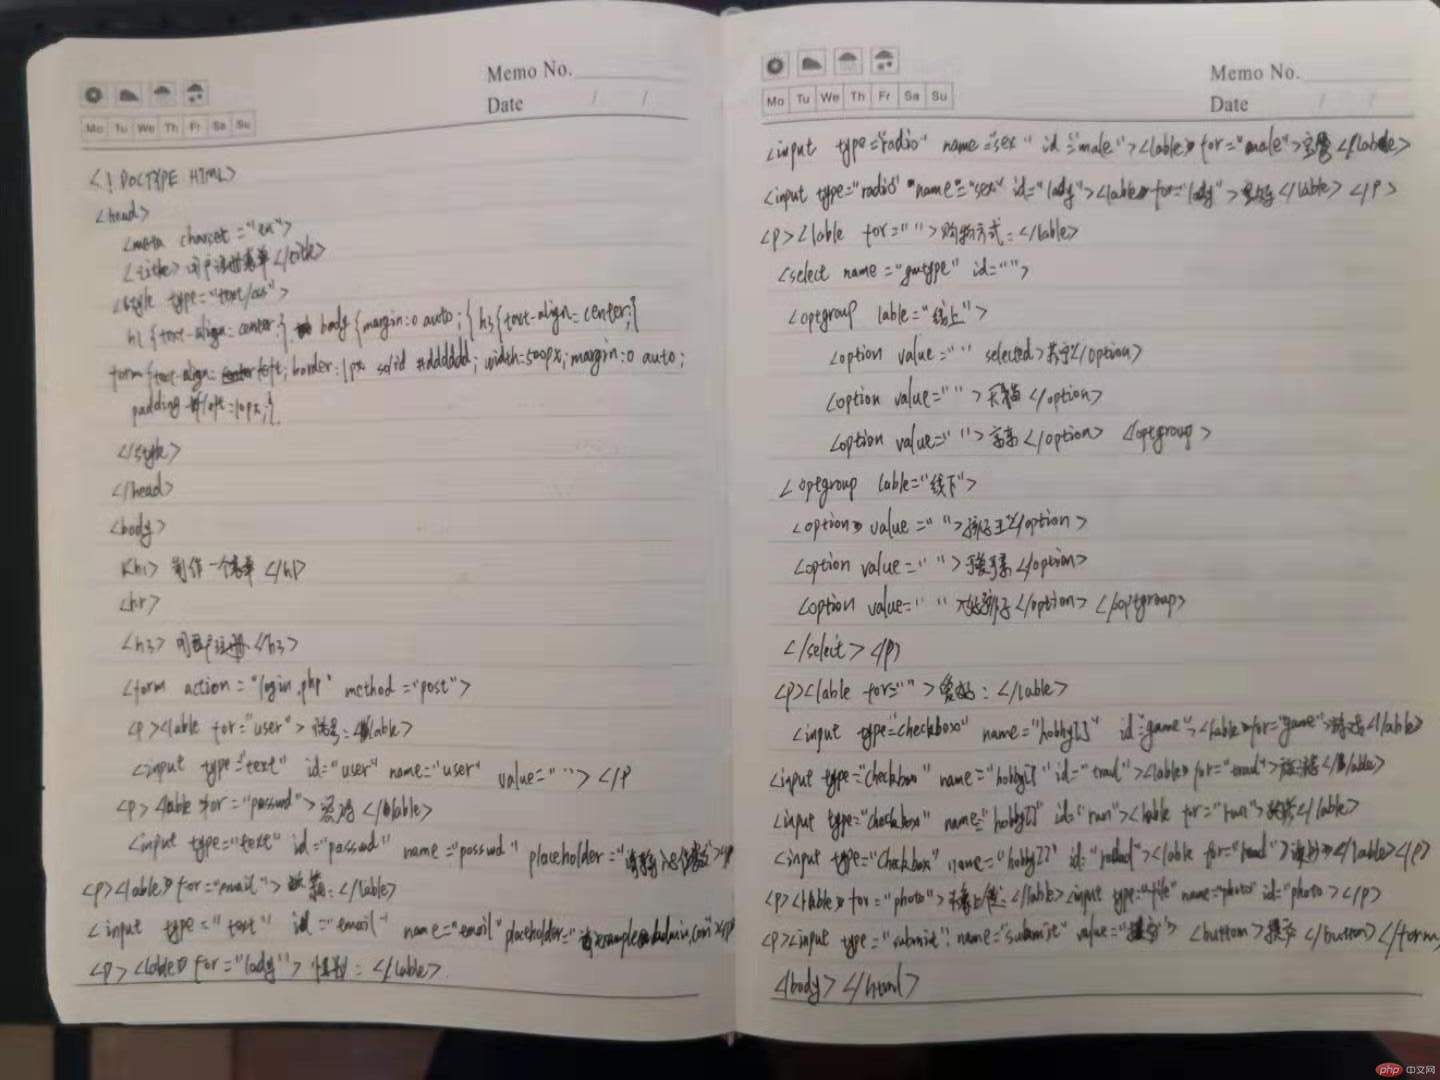 Memo No.
Date / /
Mo Tu We Th Fr Sa Su
<! DOCTYPE HTML>
<head>
<meta charset="en">
<title>用户注册表单</title>
<style type="text/css">
h1{text-align:center;} body{margin:0 auto;{h3{text-align:center;{
form{text-align: left; border:1px solid #dddddd; width=500px; margin:0 auto;
padding-left:10px;{
</style>
</head>
<body>
<h1> 制作一个表单 </h1>
<hr>
<h3> 用户注册 </h3>
<form action="login.php" method="post">
<p><lable for="user">账号:</lable>
<input type="text" id="user" name="user" value=" "> </p
<p> <lable for="passwd">密码</lable>
<input type="text" id="passwd" name="passwd" placeholder="
<p><lable for="email">邮箱:</lable>
<input type="text" id="email" name="email" placeholder="
<p><lable for="lady">性别:</lable>
Memo No.
Date / /
Mo Tu We Th Fr Sa Su
<input type="radio" name="sex" id="male"><lable for="male"> </lable>
<input type="radio" name="sex" id="lady"><lable for="lady"> </lable> </p>
<p><lable for=" ">购物方式:</lable>
<select name="gwtype" id="">
<optgroup lable="线上">
<option value=" " selected>苏宁</option>
<option value=" ">天猫</option>
<option value=" ">京东</option> </optgroup>
<optgroup lable="线下">
<option value=" ">孩子王</option>
<option value=" "> </option>
<option value=" "> </option> </optgroup>
</select> </p>
<p><lable for="">爱好:</lable>
<input type="checkbox" name="hobby[]" id="game"><lable for="game">游戏</lable>
<input type="checkbox" name="hobby[]" id=" "><lable for=" ">旅游</lable>
<input type="checkbox" name="hobby[]" id="run"><lable for="run">跑步</lable>
<input type="checkbox" name="hobby[]" id=" "><lable for=" "> </lable></p>
<p><lable for="photo"> 上传:</lable><input type="file" name="photo" id="photo></p>
<p><input type="submit" name="submite" value="提交"> <button>提交</button></form>
</body> </html>
php 中文网